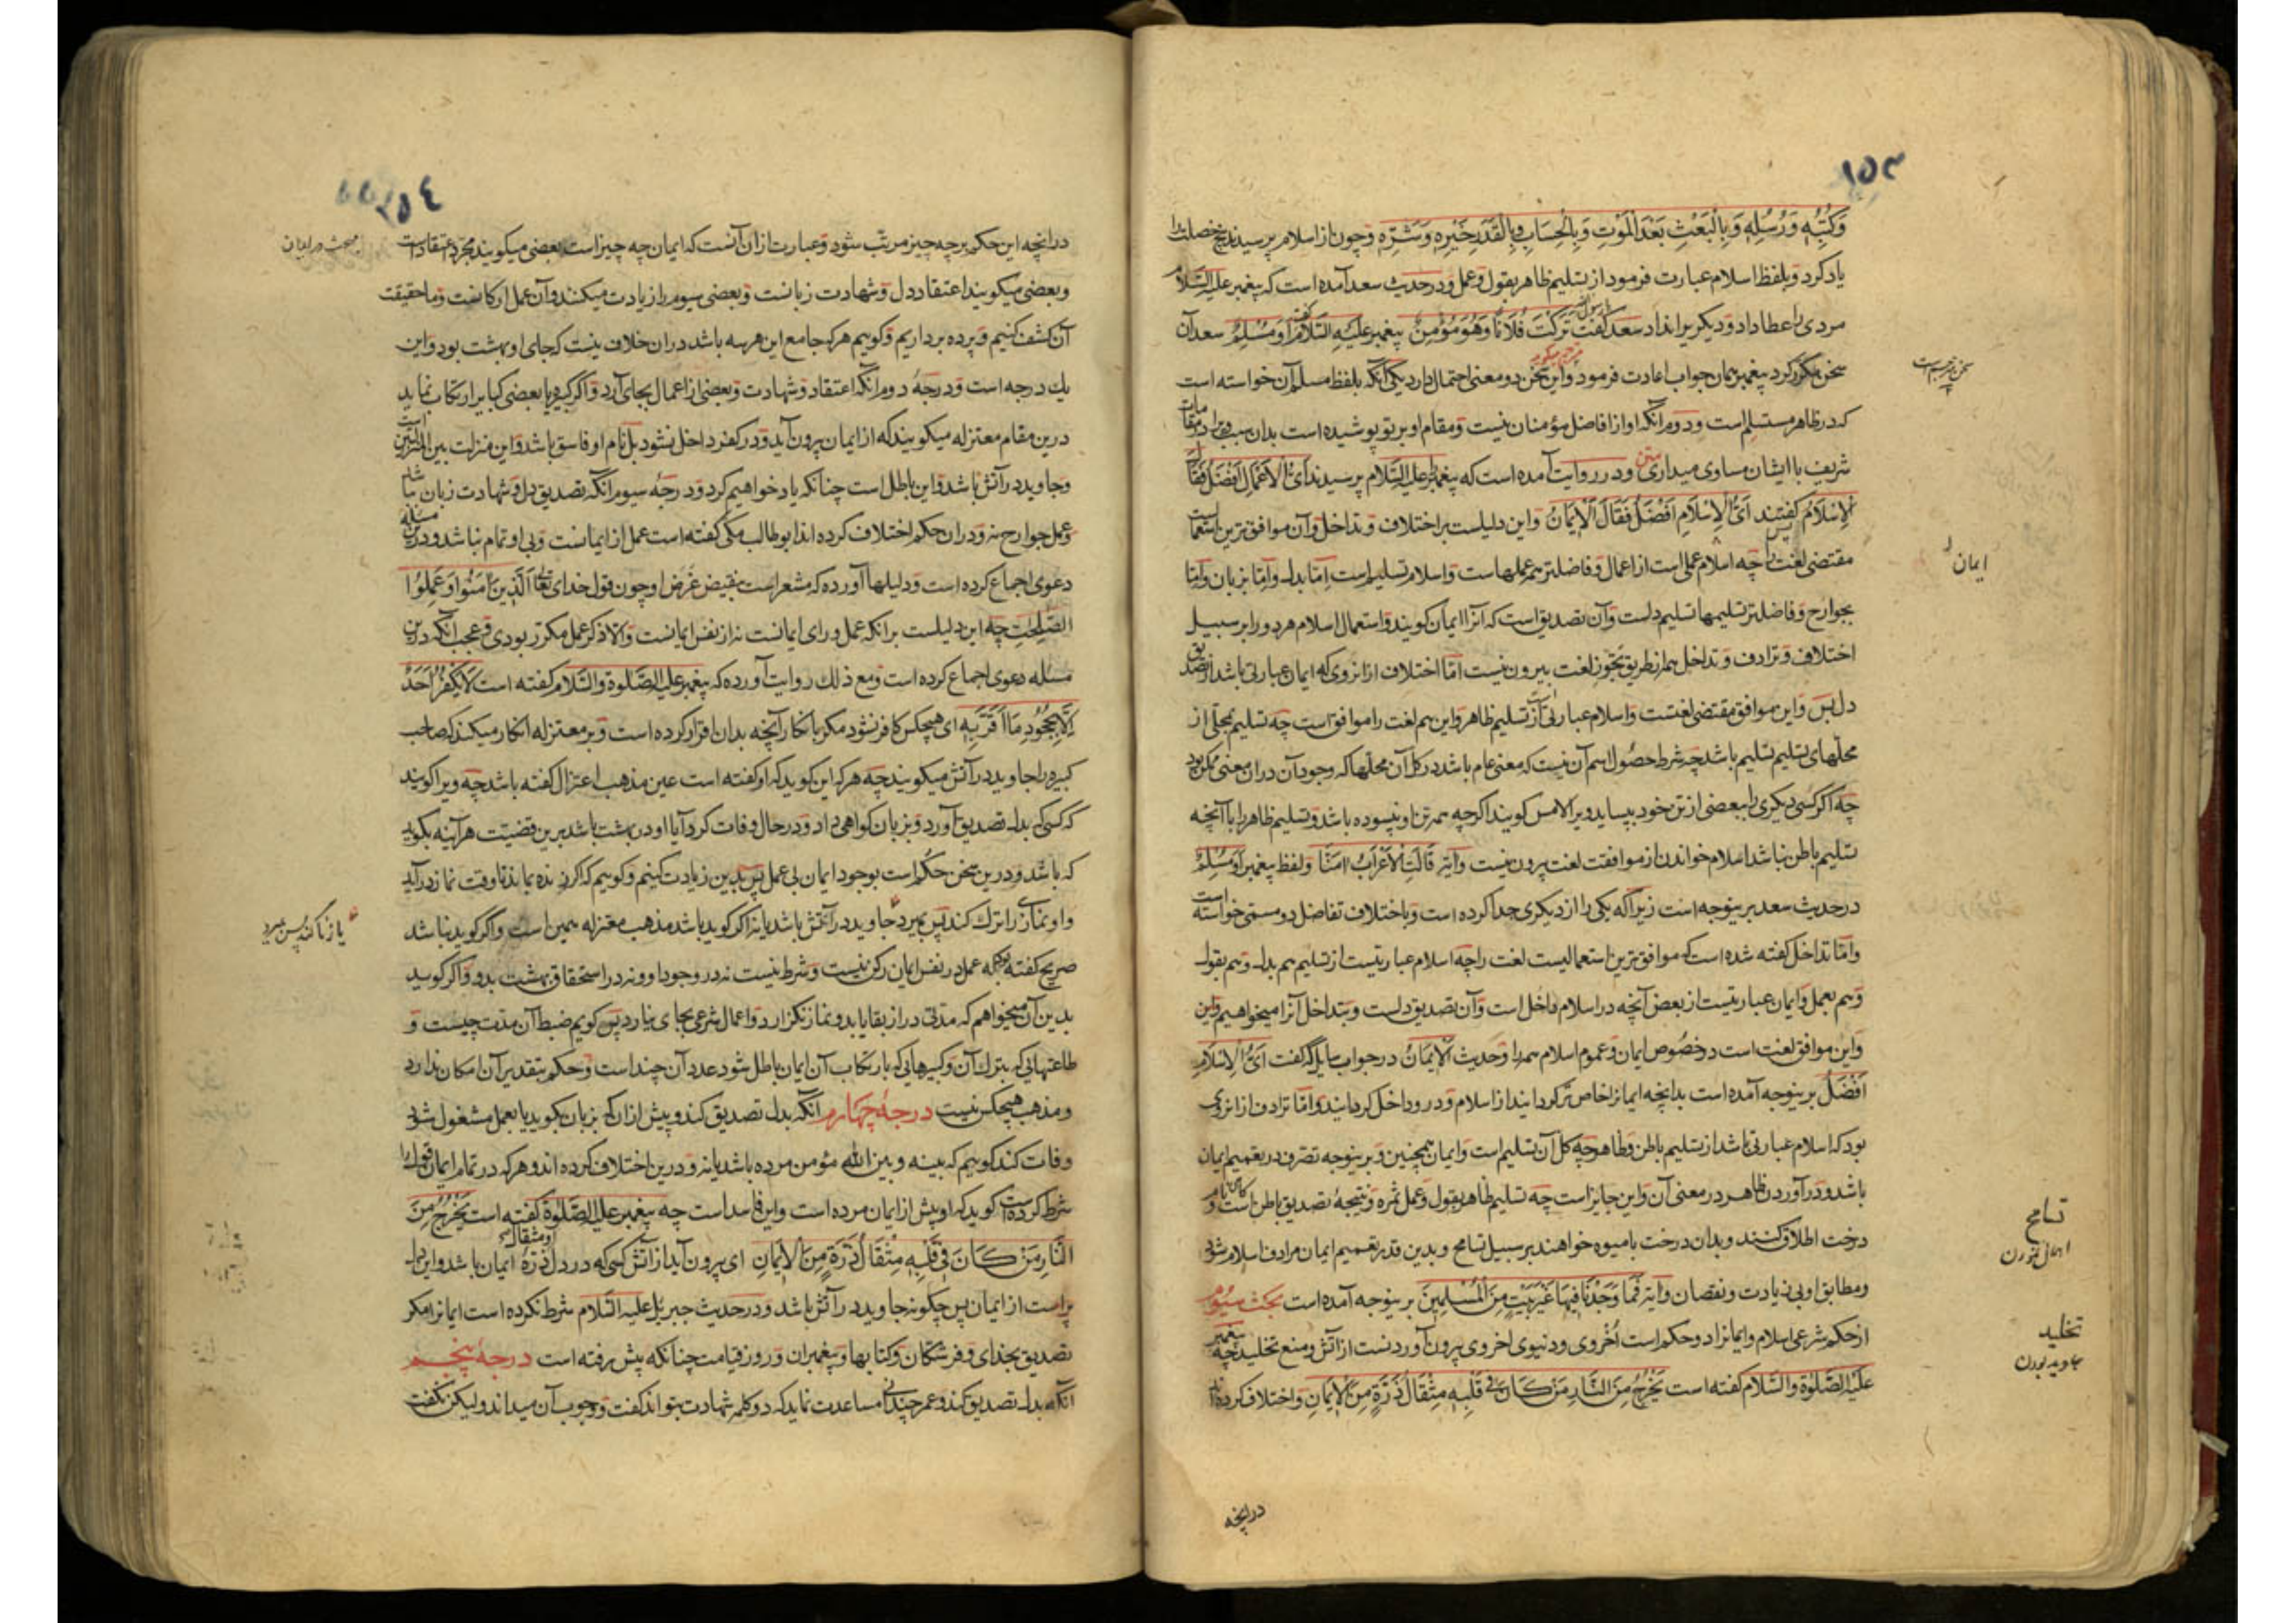 ١٥٣
وَكُتُبِهٖ وَرُسُلِهٖ وَبِالْبَعْثِ بَعْدَ الْمَوْتِ وَبِالْحِسَابِ وَبِالْقَدَرِ خَيْرِهٖ وَشَرِّهٖ وچون از اسلام پرسید پنج خصلت را
یاد کرد و بلفظ اسلام عبارت فرمود از تسلیم ظاهر بقول و عمل و در حدیث سعد آمده است که پیغمبر علیه السّلام
مردی را عطا داد و دیگریرا نداد سعد گفت تَرَكْتَ فُلَانًا وَهُوَ مُؤْمِنٌ پیغمبر علیه السّلام گفت اَوْ مُسْلِمٌ سعد آن
سخن مکرر کرد پیغمبر همان جواب اعادت فرمود و این سخن دو معنی احتمال دارد یکی آنکه بلفظ مسلم آن خواسته است
که در ظاهر مستسلم است و دوم آنکه او از افاضل مؤمنان نیست و مقام او بر تو پوشیده است بدان سبب او را در مقامات
شریف با ایشان مساوی میداری و در روایت آمده است که پیغمبر علیه السّلام پرسیدند اَیُّ الْاَعْمَالِ اَفْضَلُ فَقَالَ
الْاِسْلَامُ گفتند اَیُّ الْاِسْلَامِ اَفْضَلُ فَقَالَ الْاِيمَانُ واین دلیلست بر اختلاف و تداخل و آن موافق ترین استعمالست
مقتضی لغت را چه اسلام عملی است از اعمال و فاضلتر همه عملهاست و اسلام تسلیم است امّا بدل و امّا بزبان و امّا
بجوارح و فاضلتر تسلیمها تسلیم دلست و آن تصدیق است که آنرا ایمان گویند و استعمال اسلام هر دو را بر سبیل
اختلاف و ترادف و تداخل همه از طریق تجوّز لغت بیرون نیست امّا اختلاف از انروی که ایمان عبارتی باشد از تصدیق
دل بس و این موافق مقتضی لغتست و اسلام عبارتی از تسلیم ظاهر و این هم لغت را موافق است چه تسلیم بمحلّی از
محلّهای تسلیم تسلیم باشد چه شرط حصول اسم آن نیست که معنی عام باشد در کل آن محلّها که وجود آن در ان معنی ممکن بود
چه اگر کسی دیگری را ببعضی از تن خود بپساید ویرا لامس گویند اگرچه همه تن او نپسوده باشد و تسلیم ظاهر را با آنچه
تسلیم باطن نباشد اسلام خواندن از موافقت لغت بیرون نیست و آیه قَالَتِ الْاَعْرَابُ اٰمَنَّا و لفظ پیغمبر اَوْ مُسْلِمٌ
در حدیث سعد برینوجه است زیرا که یکی را از دیگری جدا کرده است و باختلاف تفاضل دو مسمّی خواسته است
و امّا تداخل گفته شده است که موافق ترین استعمالیست لغت را چه اسلام عبارتیست از تسلیم هم بدل و هم بقول
و هم بعمل و ایمان عبارتیست از بعض آنچه در اسلام داخل است و آن تصدیق دلست و بتداخل آنرا میخواهیم واین
واین موافق لغت است در خصوص ایمان و عموم اسلام همه را و حدیث الْاِيمَانُ در جواب سایل که گفت اَیُّ الْاِسْلَامِ
اَفْضَلُ برینوجه آمده است بدانچه ایمانرا خاص تر گردانیدند از اسلام و در و داخل گردانیدند و امّا ترادف از انروی
بود که اسلام عبارتی باشد از تسلیم باطن و ظاهر چه کل آن تسلیم است و ایمان همچنین و برینوجه تصرّف در تعمیم ایمان
باشد و در آوردن ظاهر در معنی آن و این جایز است چه تسلیم ظاهر بقول و عمل ثمره و نتیجهٔ تصدیق باطن است و
درخت اطلاق کنند و بدان درخت با میوه خواهند بر سبیل تسامح و بدین قدر تعمیم ایمان مرادف اسلام شود
و مطابق او بی زیادت و نقصان و آیه فَمَا وَجَدْنَا فِيهَا غَيْرَ بَيْتٍ مِنَ الْمُسْلِمِينَ برینوجه آمده است بحث سیوم
از حکم شرعی اسلام و ایمانرا دو حکم است اُخروی و دنیوی اخروی بیرون آوردنست از آتش و منع تخلید چه پیغمبر
علیه الصّلوة والسّلام گفته است يَخْرُجُ مِنَ النَّارِ مَنْ كَانَ فِي قَلْبِهٖ مِثْقَالُ ذَرَّةٍ مِنَ الْاِيمَانِ و اختلاف کرده اند
ایمان
تسامح
تخلید
جاوید بودن
درانچه
٢٥٤
مبحث در ایمان
درانچه این حکم بر چه چیز مرتّب شود و عبارت از ان آنست که ایمان چه چیز است بعضی میگویند مجرّد اعتقاد است
و بعضی میگویند اعتقاد دل و شهادت زبانست و بعضی سیوم را زیادت میکنند و آن عمل ارکانست و ما حقیقت
آن کشف کنیم و پرده برداریم و گوییم هر که جامع این هر سه باشد دران خلاف نیست که جای او بهشت بود و این
یك درجه است و درجهٔ دوم آنکه اعتقاد و شهادت و بعضی از اعمال بجای آرد و اگر کبیره یا بعضی کبایر ارتکاب نماید
درین مقام معتزله میگویند که از ایمان بیرون آید و در کفر داخل نشود بل نام او فاسق باشد و این منزلت بین المنزلتین است
و جاوید در آتش باشد و این باطل است چنانکه یاد خواهیم کرد و درجهٔ سیوم آنکه تصدیق دل و شهادت زبان باشد
و عمل جوارح نه و دران حکم اختلاف کرده اند ابوطالب مکّی گفته است عمل از ایمانست و بی او تمام نباشد و درین مسئله
دعوی اجماع کرده است و دلیلها آورده که مشعر است بنقیض غرض او چون قول خدای تعالی اَلَّذِينَ اٰمَنُوا وَعَمِلُوا
الصّٰلِحٰتِ چه این دلیلست بر انکه عمل ورای ایمانست نه از نفس ایمانست و الا ذکر عمل مکرّر بودی و عجب آنکه درین
مسئله دعوی اجماع کرده است و مع ذلك روایت آورده که پیغمبر علیه الصّلوة والسّلام گفته است لَا يُكَفَّرُ اَحَدٌ
اِلَّا بِجُحُودِ مَا اَقَرَّ بِهٖ ای هیچکس کافر نشود مگر بانکار آنچه بدان اقرار کرده است و بر معتزله انکار میکند که صاحب
کبیره را جاوید در آتش میگویند چه هر که این گوید که او گفته است عین مذهب اعتزال گفته باشد چه ویرا گویند
که کسی که بدل تصدیق آورد و بزبان گواهی داد و در حال وفات کرد آیا او در بهشت باشد برین قضیّت هر آینه بگوید
که باشد و درین سخن حکم است بوجود ایمان بی عمل پس بدین زیادت کنیم و گوییم که اگر زنده بماند تا وقت نماز درآید
و او نماز را ترك کند پس بمیرد جاوید در آتش باشد یا نه اگر گوید باشد مذهب معتزله همین است و اگر گوید نباشد
صریح گفته بود که عمل در نفس ایمان رکن نیست و شرط نیست نه در وجود او و نه در استحقاق بهشت بدو و اگر گوید
بدین آن میخواهم که مدتی دراز بقا یابد و نماز نگزارد و اعمال شرعی بجای نیارد پس گویم ضبط آن مدت چیست و
طاعتهایی که بترك آن و کبیرهایی که بارتکاب آن ایمان باطل شود عدد آن چند است و حکم بتقدیر آن امکان ندارد
و مذهب هیچکس نیست درجهٔ چهارم آنکه بدل تصدیق کند و پیش از ان که بزبان بگوید یا بعمل مشغول شود
وفات کند گوییم که بینه و بین الله مؤمن مرده باشد یا نه و درین اختلاف کرده اند و هر که در تمام ایمان قول را
شرط کرده است گوید که او پیش از ایمان مرده است و این فاسد است چه پیغمبر علیه الصّلوة گفته است يَخْرُجُ مِنَ
النَّارِ مَنْ كَانَ فِي قَلْبِهٖ مِثْقَالُ ذَرَّةٍ مِنَ الْاِيمَانِ ای بیرون آید از آتش کسی که در دل او مثقال ذرّهٔ ایمان باشد و این دل
پر است از ایمان پس چگونه جاوید در آتش باشد و در حدیث جبریل علیه السّلام شرط نکرده است ایمانرا مگر
تصدیق بخدای و فرشتگان و کتابها و پیغمبران و روز قیامت چنانکه پیش رفته است درجهٔ پنجم
آنکه بدل تصدیق کند و عمر چندانی مساعدت نماید که دو کلمه شهادت بتواند گفت و وجوب آن میداند ولیکن نگفت